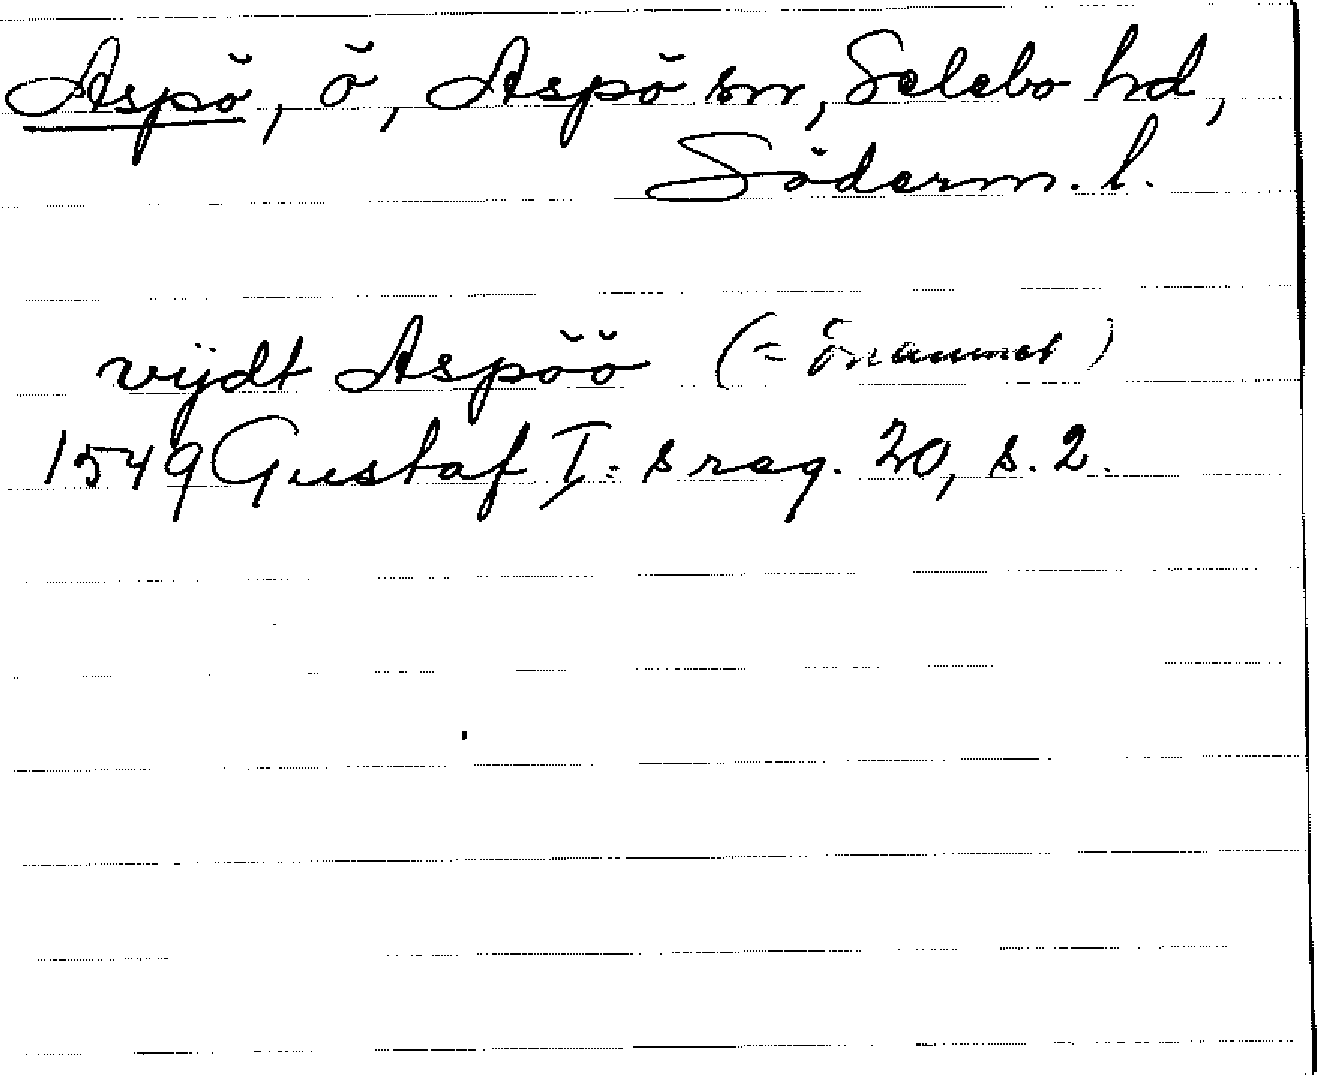 Aspö, ö, Aspö sn, Selebo hd,
Söderm. l.
vijdt Aspöö (= önamnet)
1549 Gustaf I:s reg. 20, s. 2.